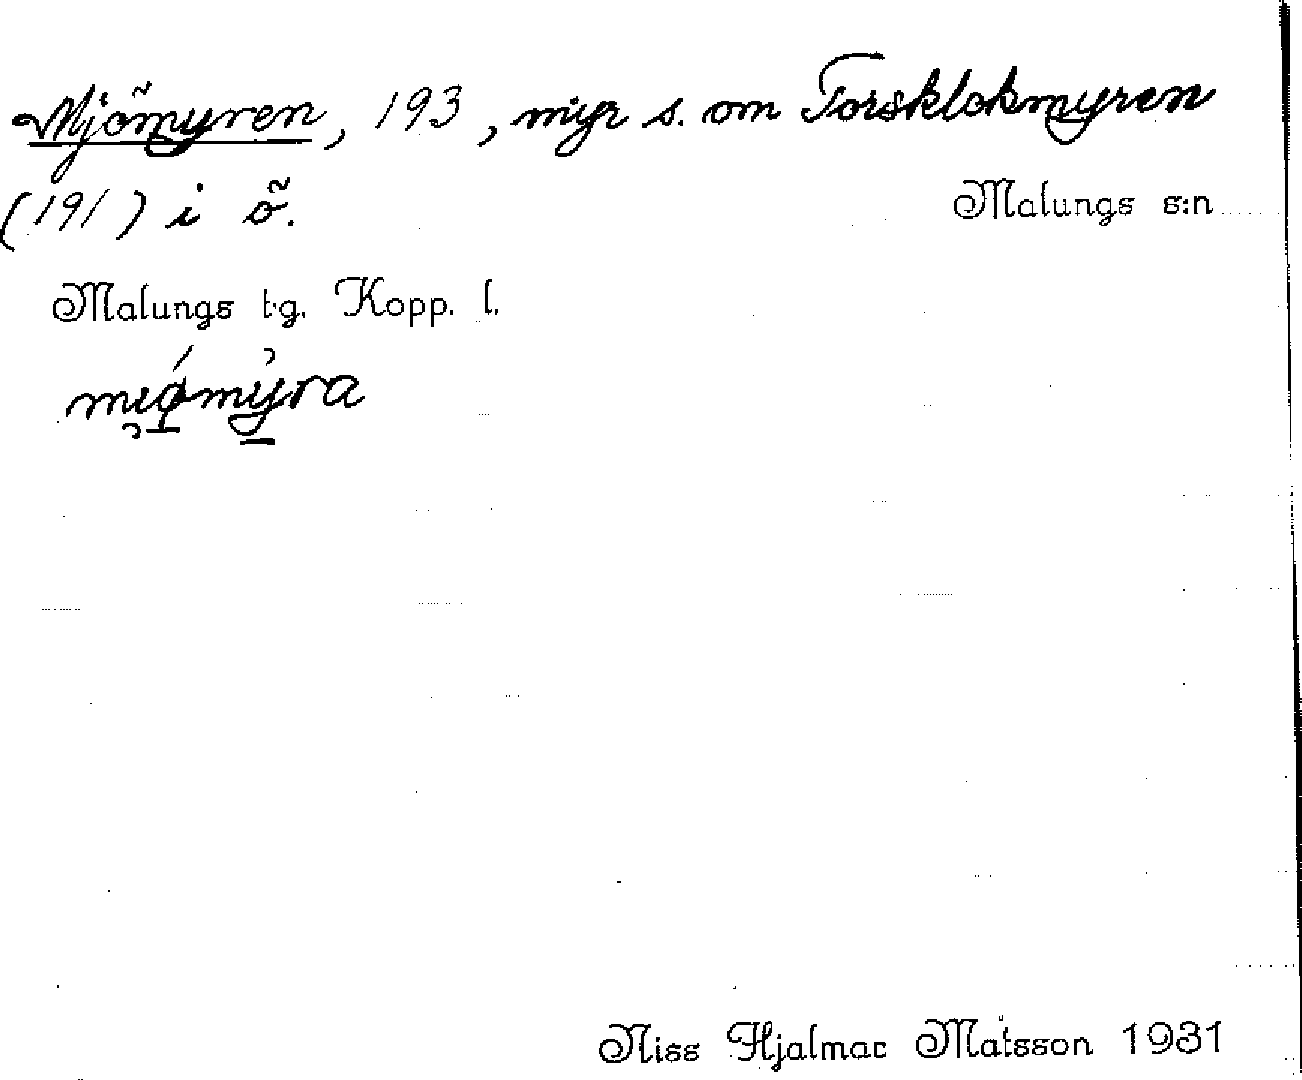 Mjömyren, 193, myr s. om Torsklokmyren
(191) i ö.
Malungs s:n
Malungs t.g. Kopp. l.
Niss Hjalmar Matsson 1931